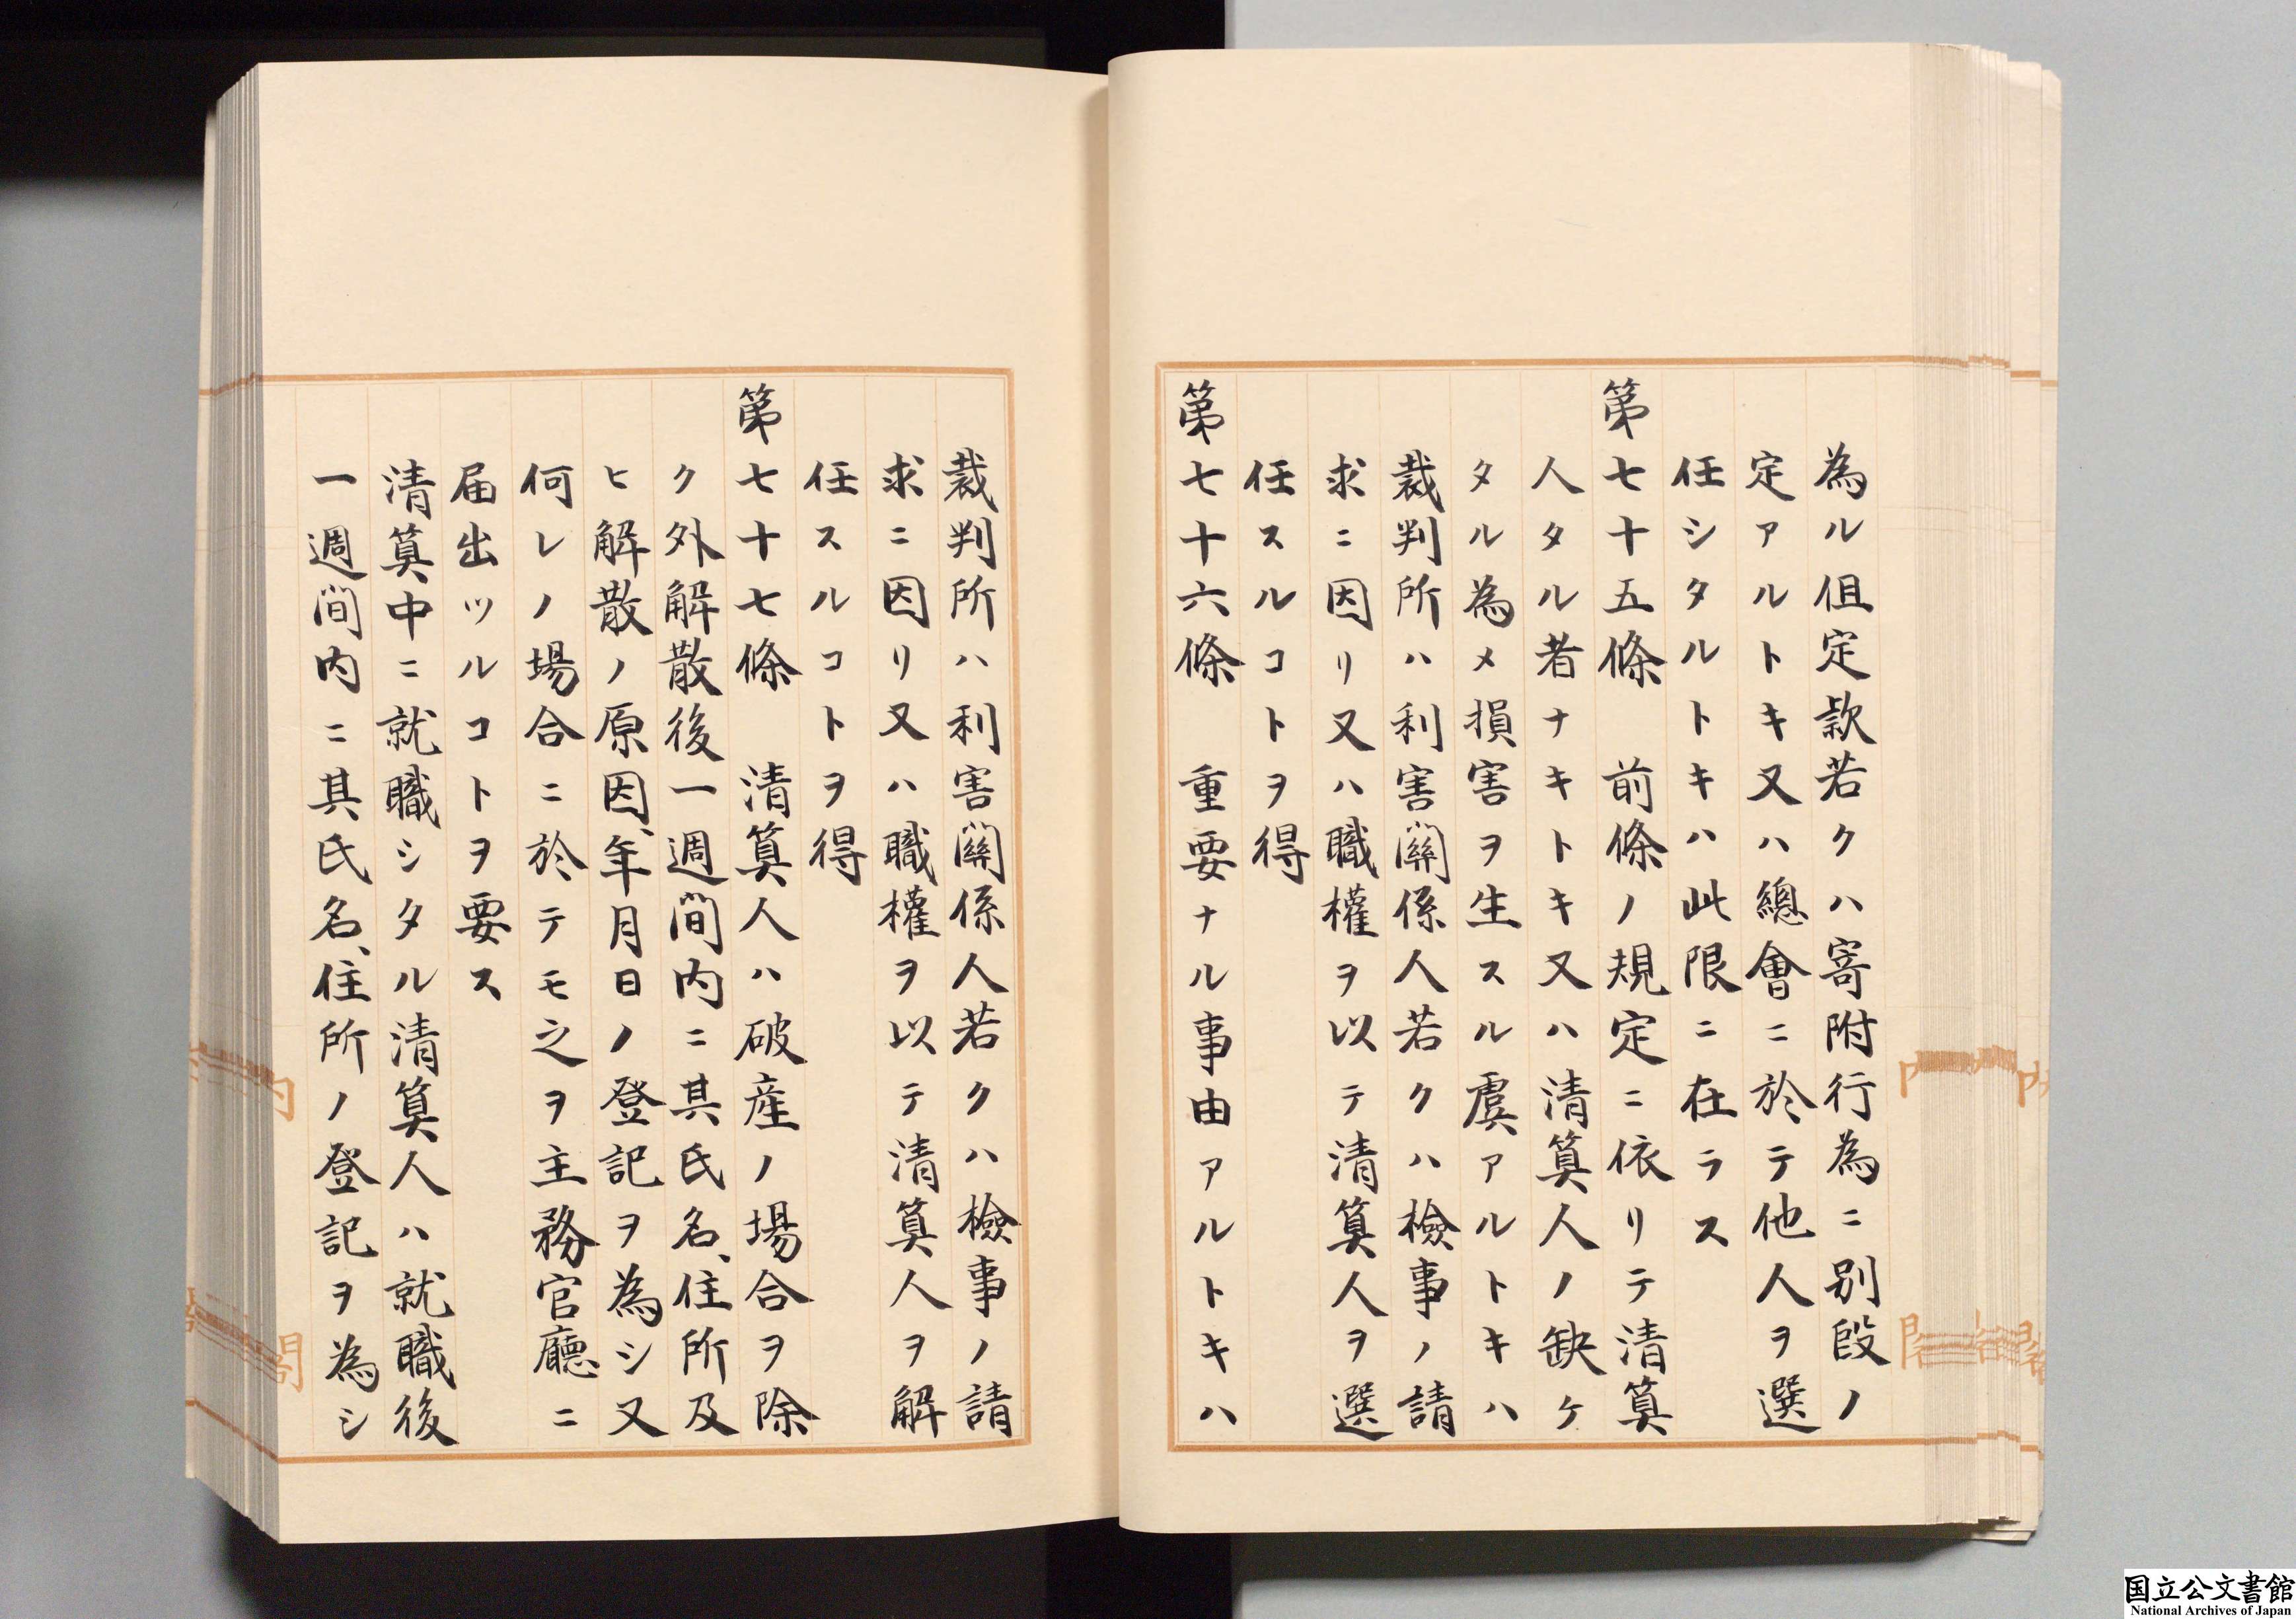 為ル但定款若クハ寄附行為ニ別段ノ
定アルトキ又ハ總會ニ於テ他人ヲ選
任シタルトキハ此限ニ在ラス
第七十五條 前條ノ規定ニ依リテ清算
人タル者ナキトキ又ハ清算人ノ缺ケ
タル為メ損害ヲ生スル虞アルトキハ
裁判所ハ利害關係人若クハ檢事ノ請
求ニ因リ又ハ職權ヲ以テ清算人ヲ選
任スルコトヲ得
第七十六條 重要ナル事由アルトキハ
裁判所ハ利害關係人若クハ檢事ノ請
求ニ因リ又ハ職權ヲ以テ清算人ヲ解
任スルコトヲ得
第七十七條 清算人ハ破産ノ場合ヲ除
ク外解散後一週間内ニ其氏名、住所及
ヒ解散ノ原因、年月日ノ登記ヲ為シ又
何レノ場合ニ於テモ之ヲ主務官廳ニ
届出ツルコトヲ要ス
清算中ニ就職シタル清算人ハ就職後
一週間内ニ其氏名、住所ノ登記ヲ為シ
国立公文書館
National Archives of Japan